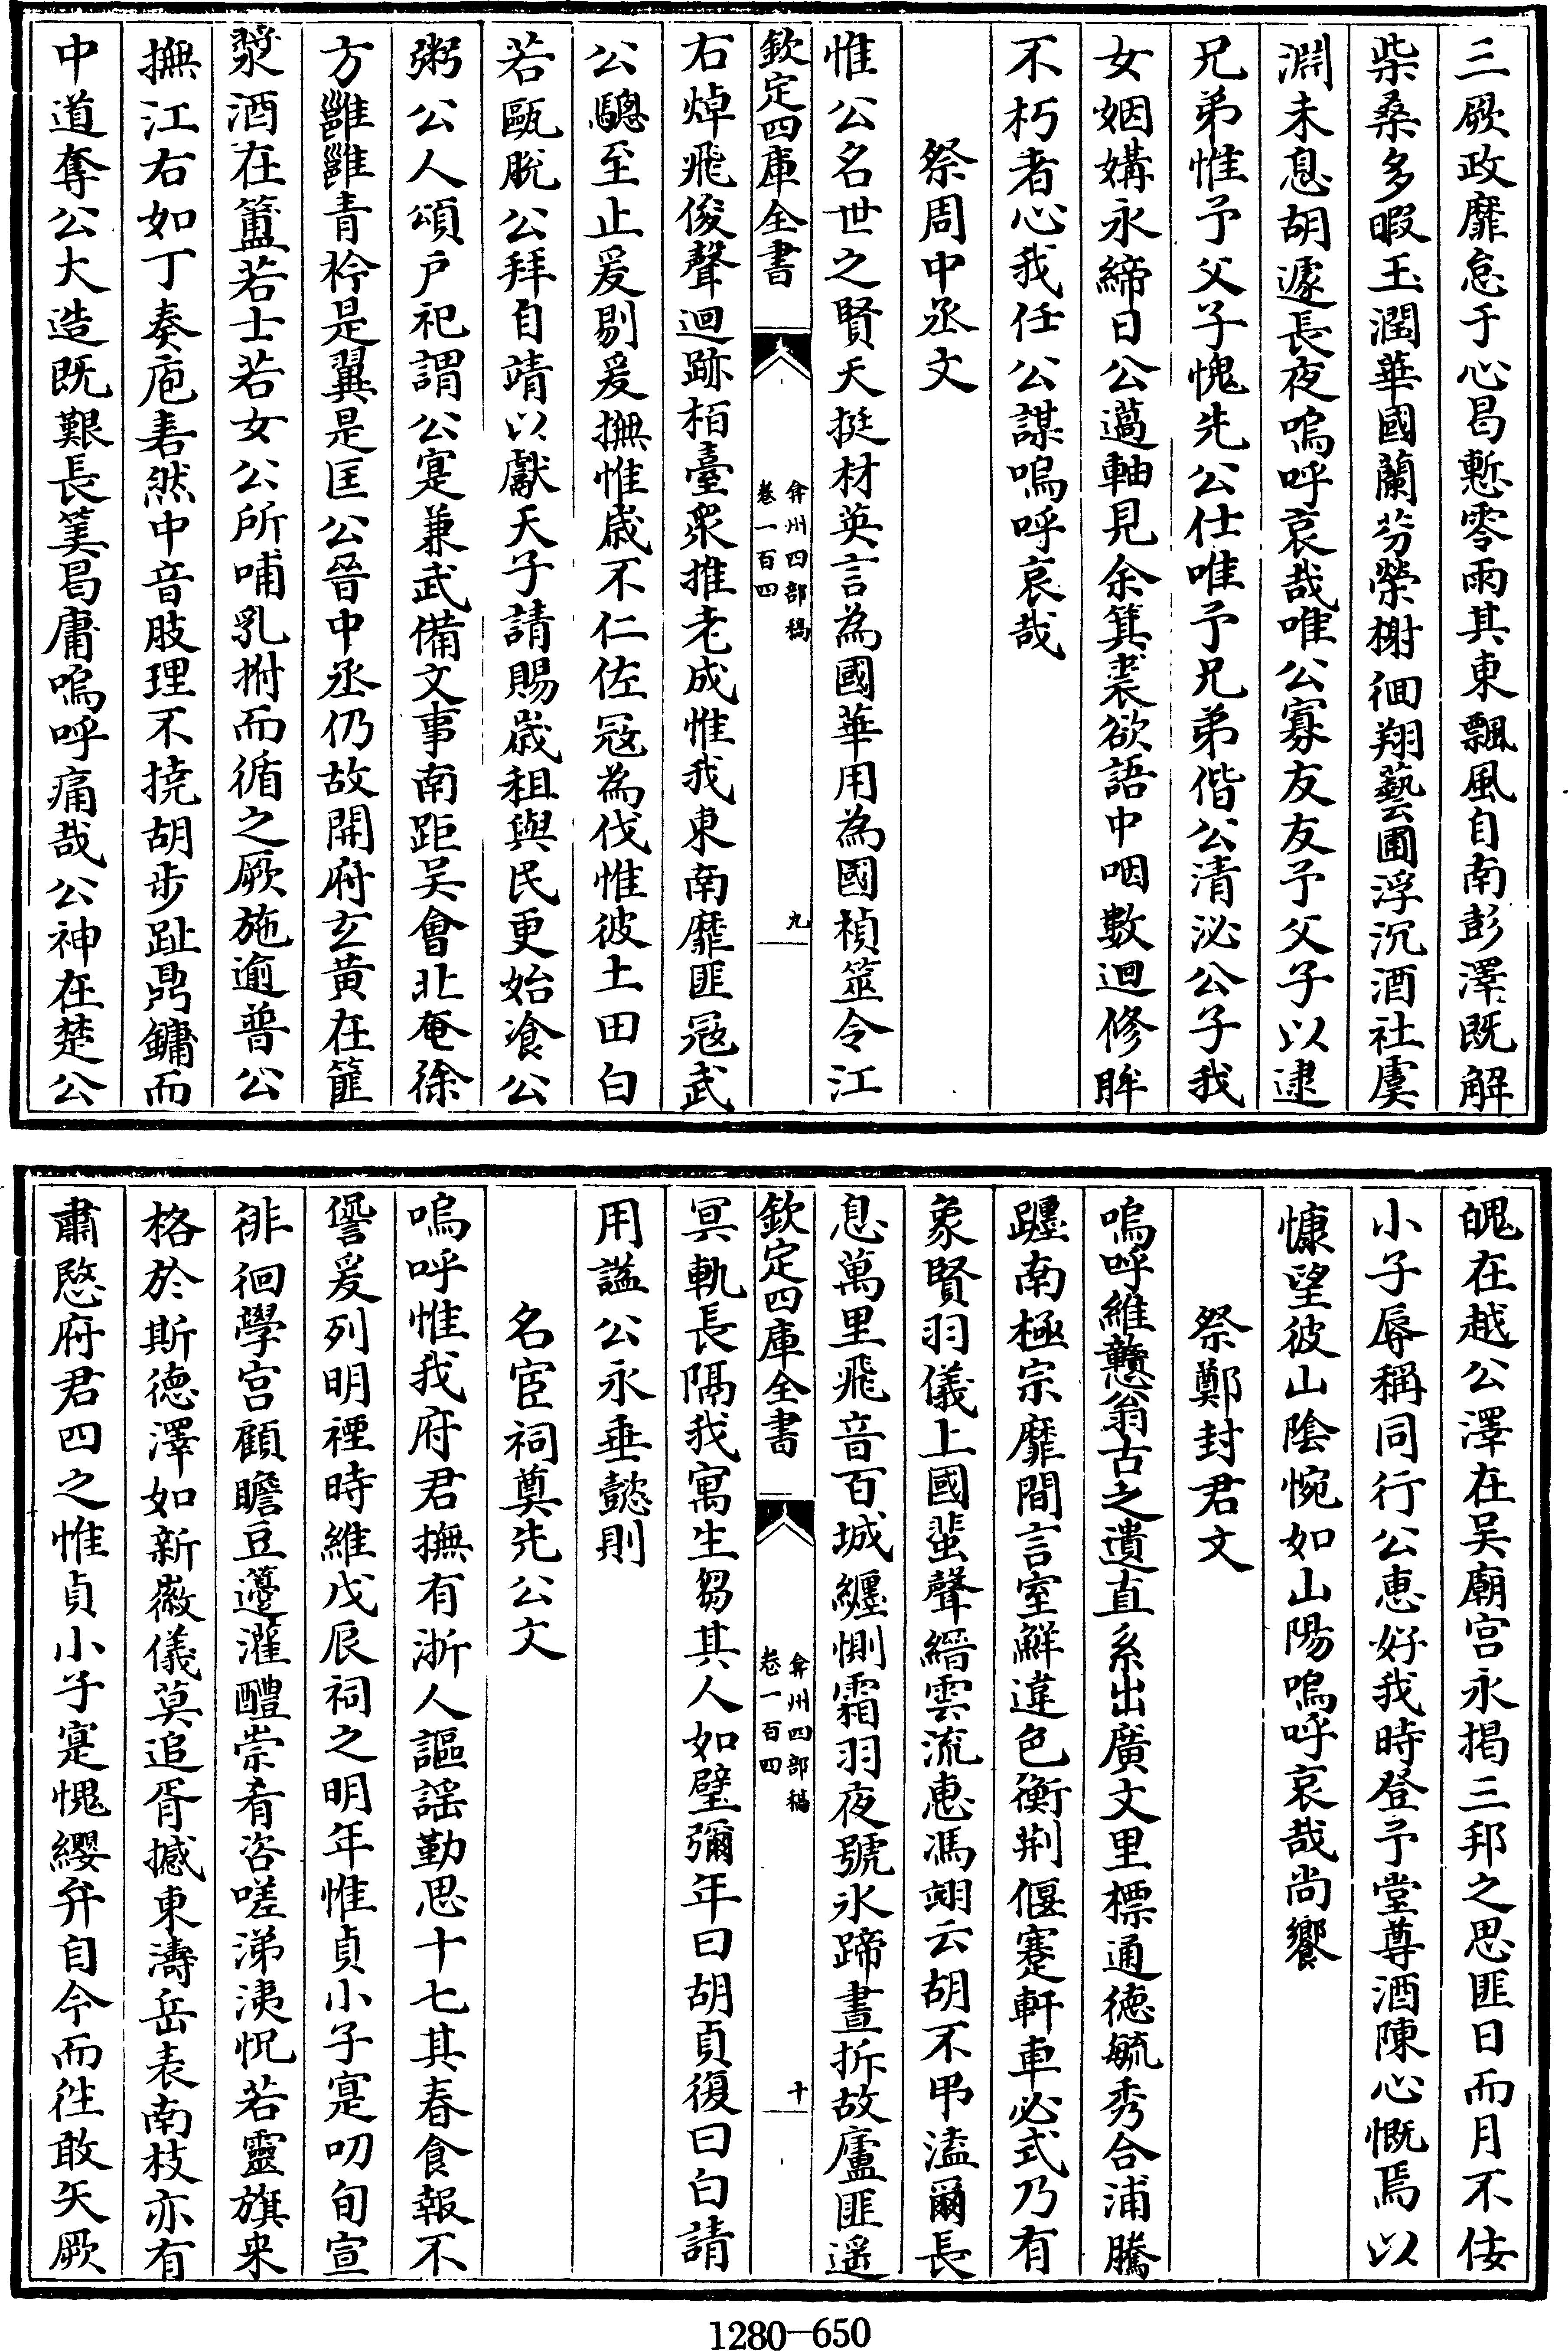 三厥政靡怠于心曷慙零雨其東飄風自南彭澤既解
柴桑多暇玉潤華國蘭芬榮榭徊翔藝圃浮沉酒社虞
淵未息胡遽長夜嗚呼哀哉唯公寡友友予父子以逮
兄弟惟予父子愧先公仕唯予兄弟偕公清泌公子我
女姻媾永締日公薖軸見余箕裘欲語中咽數迴修眸
不朽者心我任公謀嗚呼哀哉
祭周中丞文
惟公名世之賢天挺材英言為國華用為國楨筮令江
欽定四庫全書
弇州四部稿
卷一百四
九
右焯飛俊聲迴跡栢臺衆推老成惟我東南靡匪寇武
公驄至止爰剔爰撫惟歲不仁佐寇為伐惟彼土田白
若甌脫公拜自靖以獻天子請賜歲租與民更始飡公
粥公人頌戶祀謂公寔兼武備文事南距吳會北奄徐
方雝雝青衿是翼是匡公晉中丞仍故開府玄黄在篚
漿酒在簠若士若女公所哺乳拊而循之厥施逾普公
撫江右如丁奏庖砉然中音肢理不撓胡步趾鼎鏞而
中道奪公大造既艱長筭曷庸嗚呼痛哉公神在楚公
魄在越公澤在吳廟宫永掲三邦之思匪日而月不佞
小子辱稱同行公恵好我時登予堂尊酒陳心慨焉以
慷望彼山隂惋如山陽嗚呼哀哉尚饗
祭鄭封君文
嗚呼維戇翁古之遺直系出廣文里標通德毓秀合浦騰
躔南極宗靡間言室鮮違色衡荆偃蹇軒車必式乃有
象賢羽儀上國蜚聲縉雲流恵馮翊云胡不弔溘爾長
息萬里飛音百城纏惻霜羽夜號氷蹄晝折故廬匪遥
欽定四庫全書
弇州四部稿
卷一百四
十
冥軌長隔我寓生芻其人如璧彌年曰胡貞復曰白請
用謚公永垂懿則
名宦祠奠先公文
嗚呼惟我府君撫有浙人謳謡勤思十七其春食報不
諐爰列明禋時維戊辰祠之明年惟貞小子寔叨旬宣
徘徊學宫顧瞻豆籩灌醴崇肴咨嗟涕洟怳若靈旗来
格於斯德澤如新徽儀莫追胥撼東濤岳表南枝亦有
肅愍府君四之惟貞小子寔愧纓弁自今而徃敢矢厥
1280－650